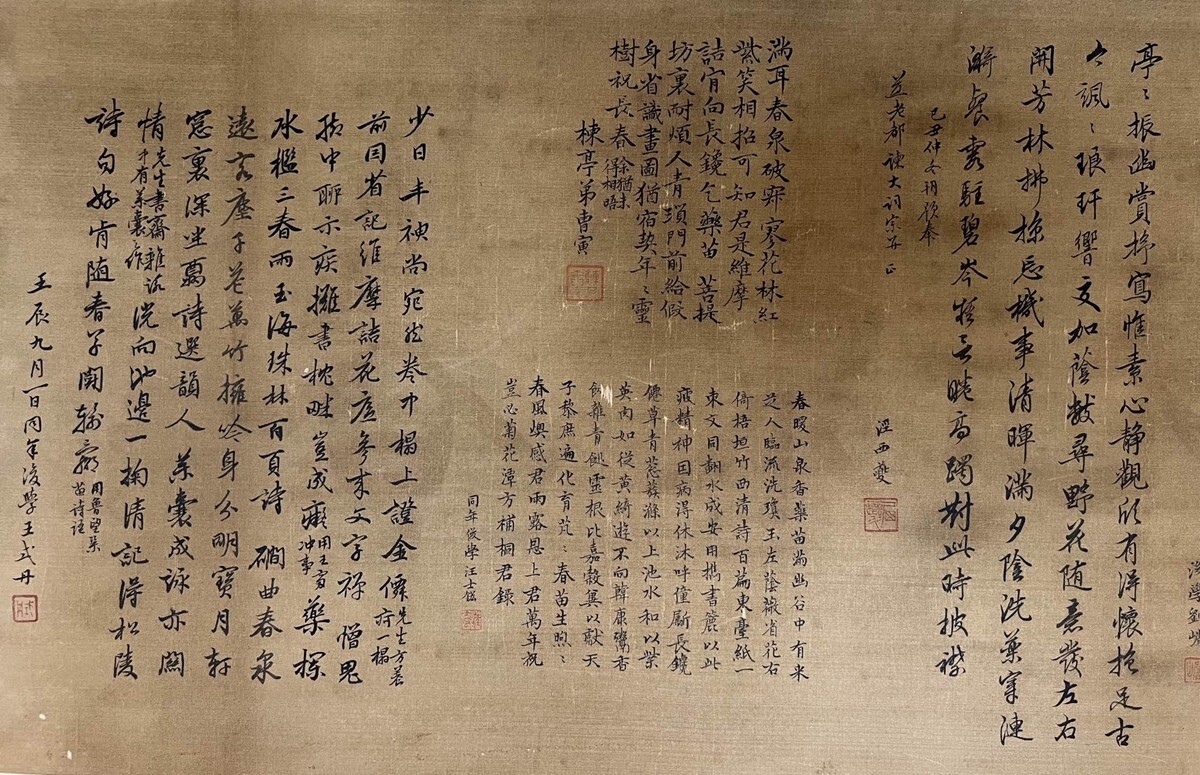 亭〻振幽賞抒寫惟素心靜觀欣有得懷抱足古
今颯〻琅玕響交加蔭鼓尋野花隨意發左右
開芳林拂掠忘機事清暉滿夕陰洗藥寒漣
漪晨霧駐碧岑
高躅對此時披襟
己丑仲冬
益老都諫大詞宗并正
涇西
滿耳春泉破寂寥花林紅
紫笑相招可知君是維摩
詰肎向長鑱乞藥苗 菩提
坊裏耐煩人青瑣門前給假
身省識畫圖猶宿契年〻靈
樹祝長春余猶未得相晤
楝亭弟曹寅
春暖山泉香藥苗滿幽谷中有采
芝人臨流洗瓊玉左蔭薇省花右
倚梧垣竹西清詩百篇東臺紙一
束文同翻水成安用攜書簏以此
疲精神因病得休沐呼僮斸長鑱
僊草青蔥蓐滌以上池水和以紫
英肉如從黃綺遊不向韓康鬻香
飯雜青飿靈根比嘉穀冀以獻天
子黎庶遍化育芃〻春苗生煦〻
春風燠感君雨露恩上君萬年祝
豈必菊花潭方補桐君錄
同年後學汪士鋐
少日丰神尚宛然卷中榻上證金僊先生方著
前因省記維摩詰花底參來文字禪 憎鬼
揶中聊示疾擁書枕畔豈成癡用王
冲事藥探
冰檻三春雨玉海珠林百頁詩 磵曲春泉
遠
塵子苍萬竹擁吟身分明寶月軒
窓裏深
詩選韻人 藥囊成詠亦關
情先生書齋雜詠
中有藥囊作
洗向池邊一掬清記得松陵
詩句好肯隨春草鬪輸贏用魯望
苗詩語
壬辰九月一日同年後學王式丹